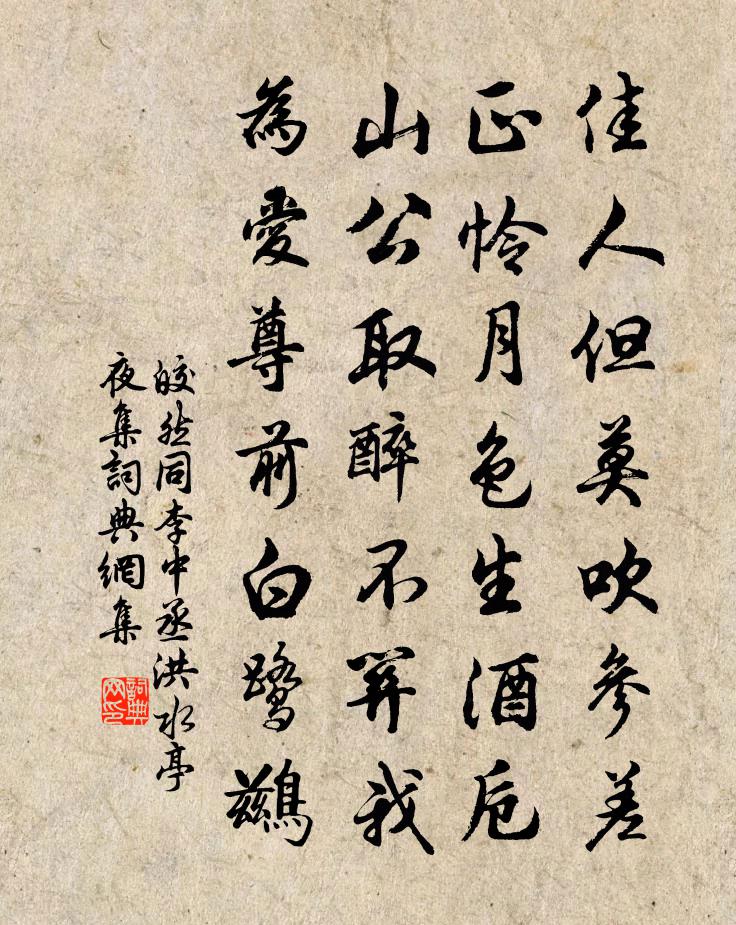 佳人但莫吹參差
正怜月色生酒卮
山公取醉不關我
為愛尊前白鷺鷀
皎然同李中丞洪水亭
夜集詞典網集
詞典
网印